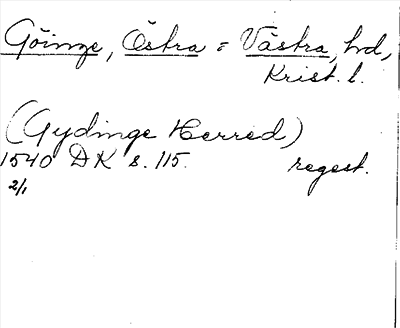 Göinge, Östra = Västra, hd,
Krist. l.
(Gydinge Herred)
1540 DK s. 115. regest.
2/1